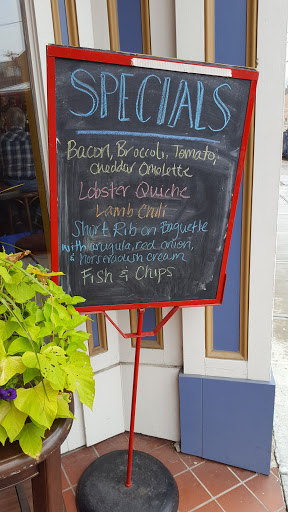 SPECIALS
Bacon, Broccoli, Tomato,
cheddar Omolette
Lobster Quiche
Lamb Chili
Short Rib on Baguette
with arugula, red onion,
& horseradish cream
Fish & Chips